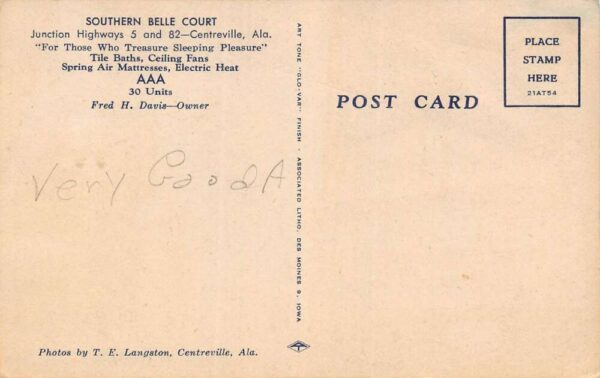 SOUTHERN BELLE COURT
Junction Highways 5 and 82—Centreville, Ala.
"For Those Who Treasure Sleeping Pleasure"
Tile Baths, Ceiling Fans
Spring Air Mattresses, Electric Heat
AAA
30 Units
Fred H. Davis—Owner
Very Good A
Photos by T. E. Langston, Centreville, Ala.
ART TONE "GLO-VAR" FINISH - ASSOCIATED LITHO. DES MOINES 9, IOWA
POST CARD
PLACE
STAMP
HERE
21AT54